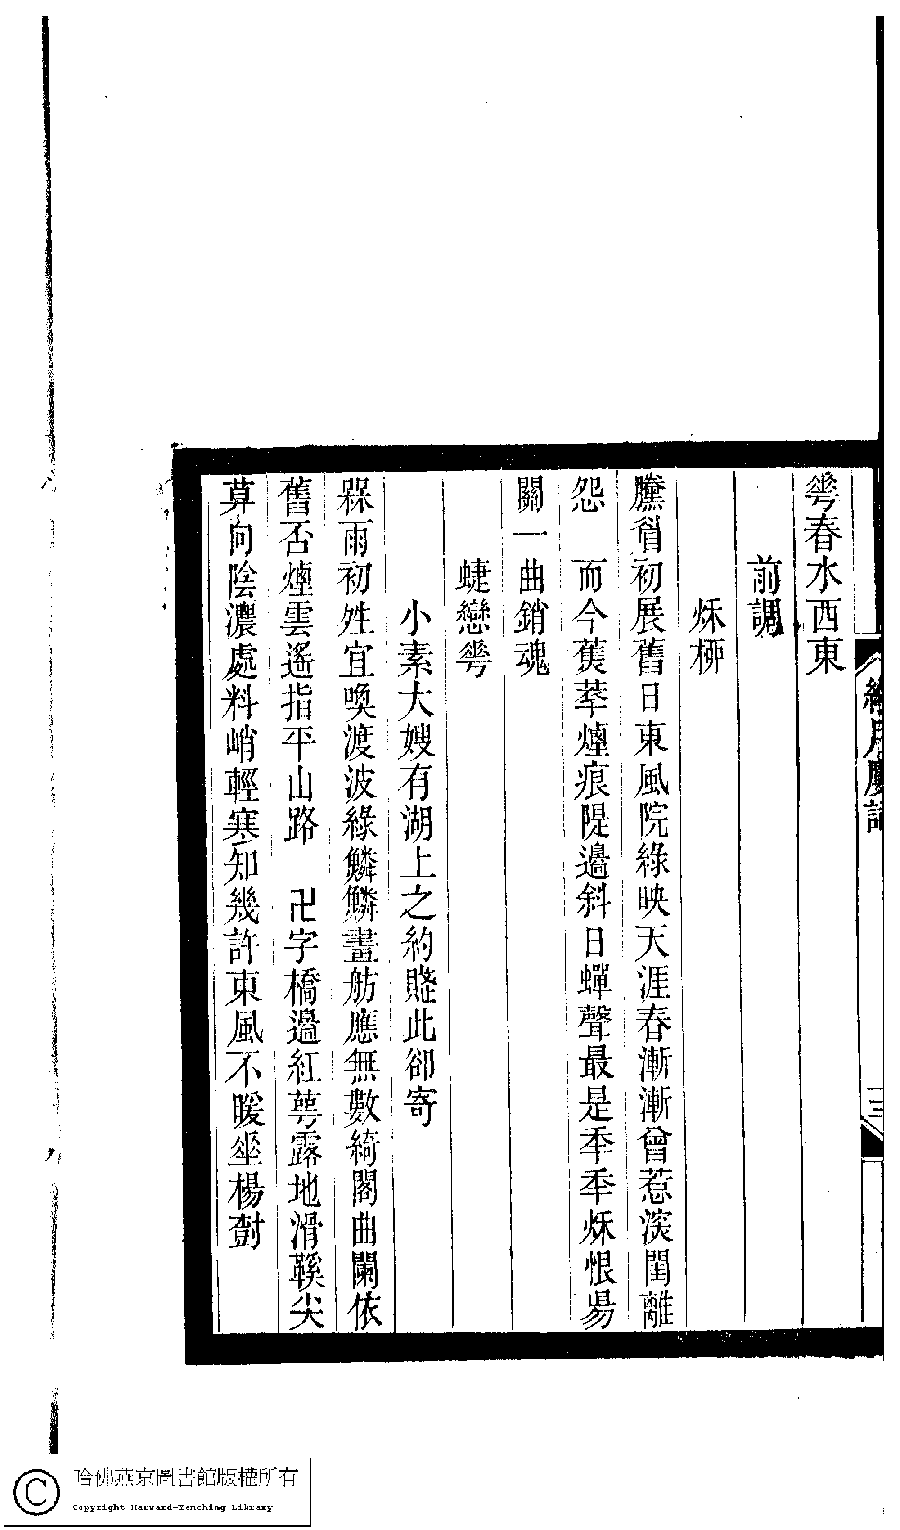 蕚春水西東
前調
秌桺
黱睂初展舊日東風院綠映天涯春漸漸曾惹深閨離
怨　而今舊苹煙痕隄邊斜日蟬聲最是秊秊秌恨昜
關一曲銷魂
蜨戀蕚
小素大嫂有湖上之約賸此卻寄
槑雨初姓宜喚渡波綠鱗鱗畫舫應無數綺閣曲闌依
舊否煙雲遙指平山路　卍字橋邊紅萼露地滑鞵尖
莫向陰濃處料峭輕寒知幾許東風不暖㘴楊尌
三
哈佛燕京圖書館版權所有
Copyright Harvard-Yenching Library